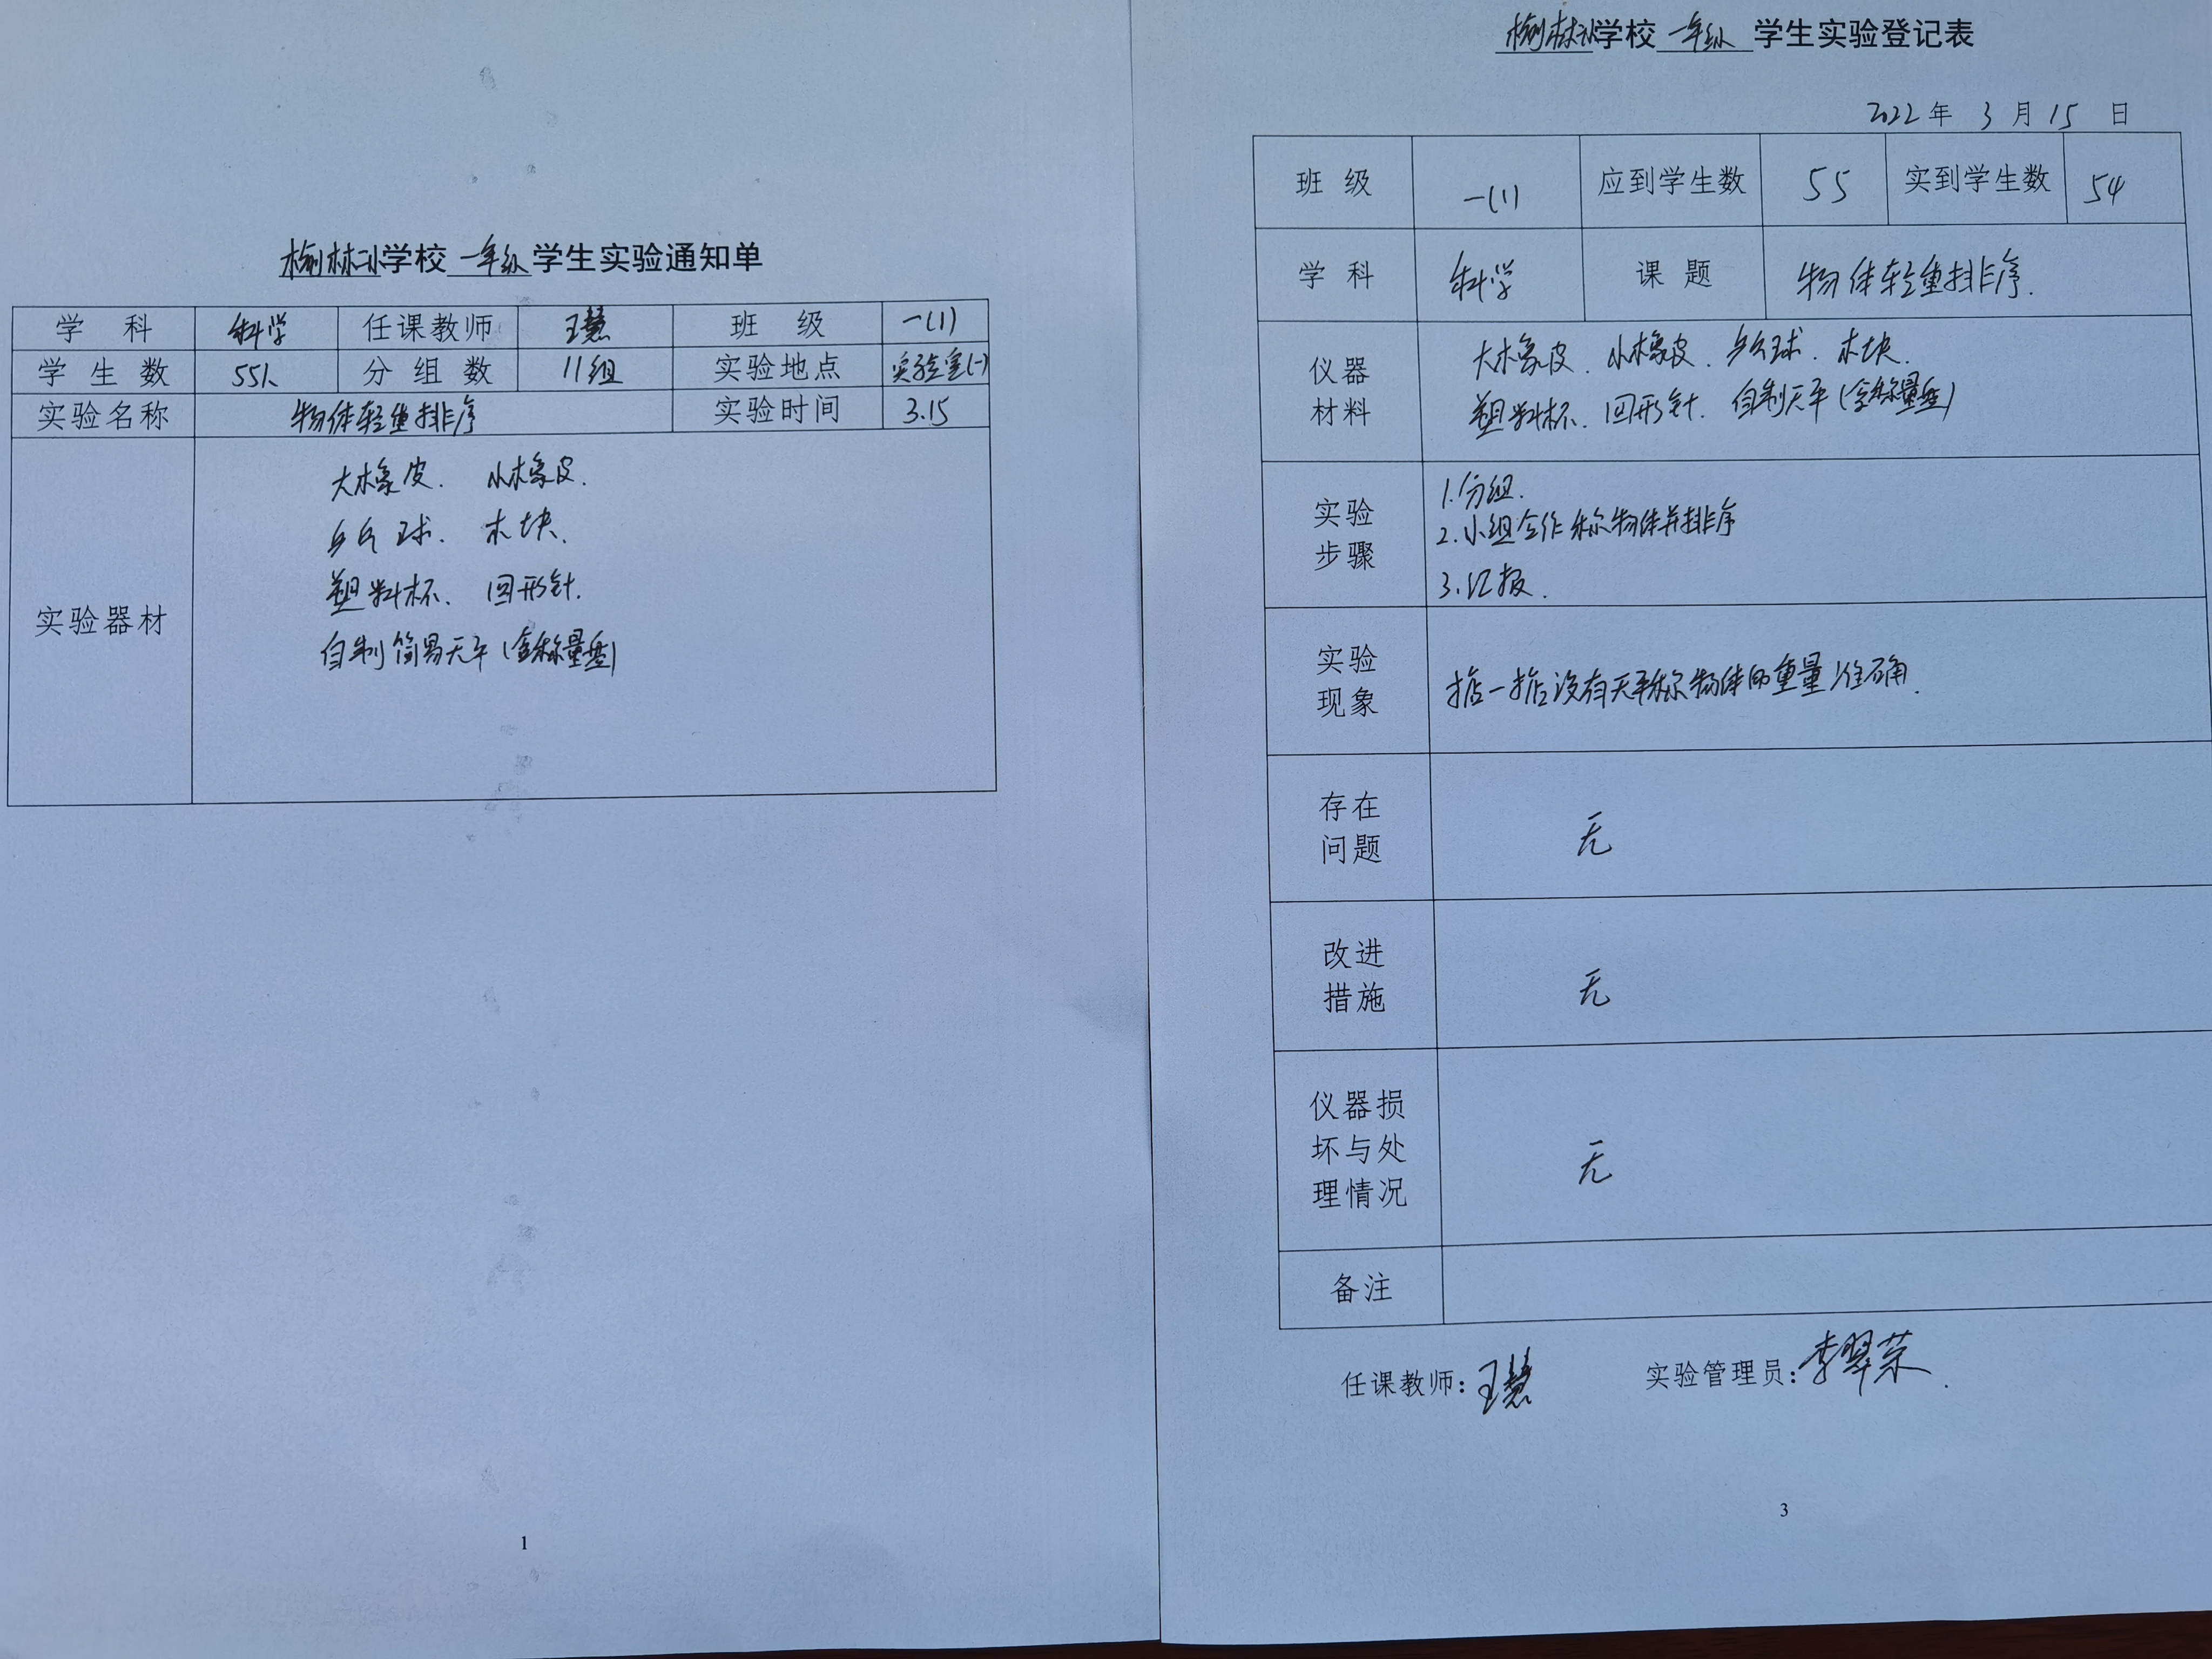 榆林小学校 一年级 学生实验通知单
学 科 科学 任课教师 王慧 班 级 一(1)
学 生 数 55人 分 组 数 11组 实验地点 实验室(一)
实验名称 物体轻重排序 实验时间 3.15
实验器材
大橡皮. 小橡皮.
乒乓球. 木块.
塑料杯. 回形针.
自制简易天平(含称量盘)
1
学校 一年级 学生实验登记表
2022年 3 月 15 日
班 级 一(1) 应到学生数 55 实到学生数 54
学 科 科学 课 题 物体轻重排序.
仪器
材料
大橡皮. 小橡皮. 乒乓球. 木块.
塑料杯. 回形针. 自制天平(含称量盘)
实验
步骤
1.分组.
2.小组合作称物体并排序
3.汇报.
实验
现象
掂一掂没有天平称物体的重量准确.
存在
问题
无
改进
措施
无
仪器损
坏与处
理情况
无
备注
任课教师:王慧 实验管理员:李翠荣.
3